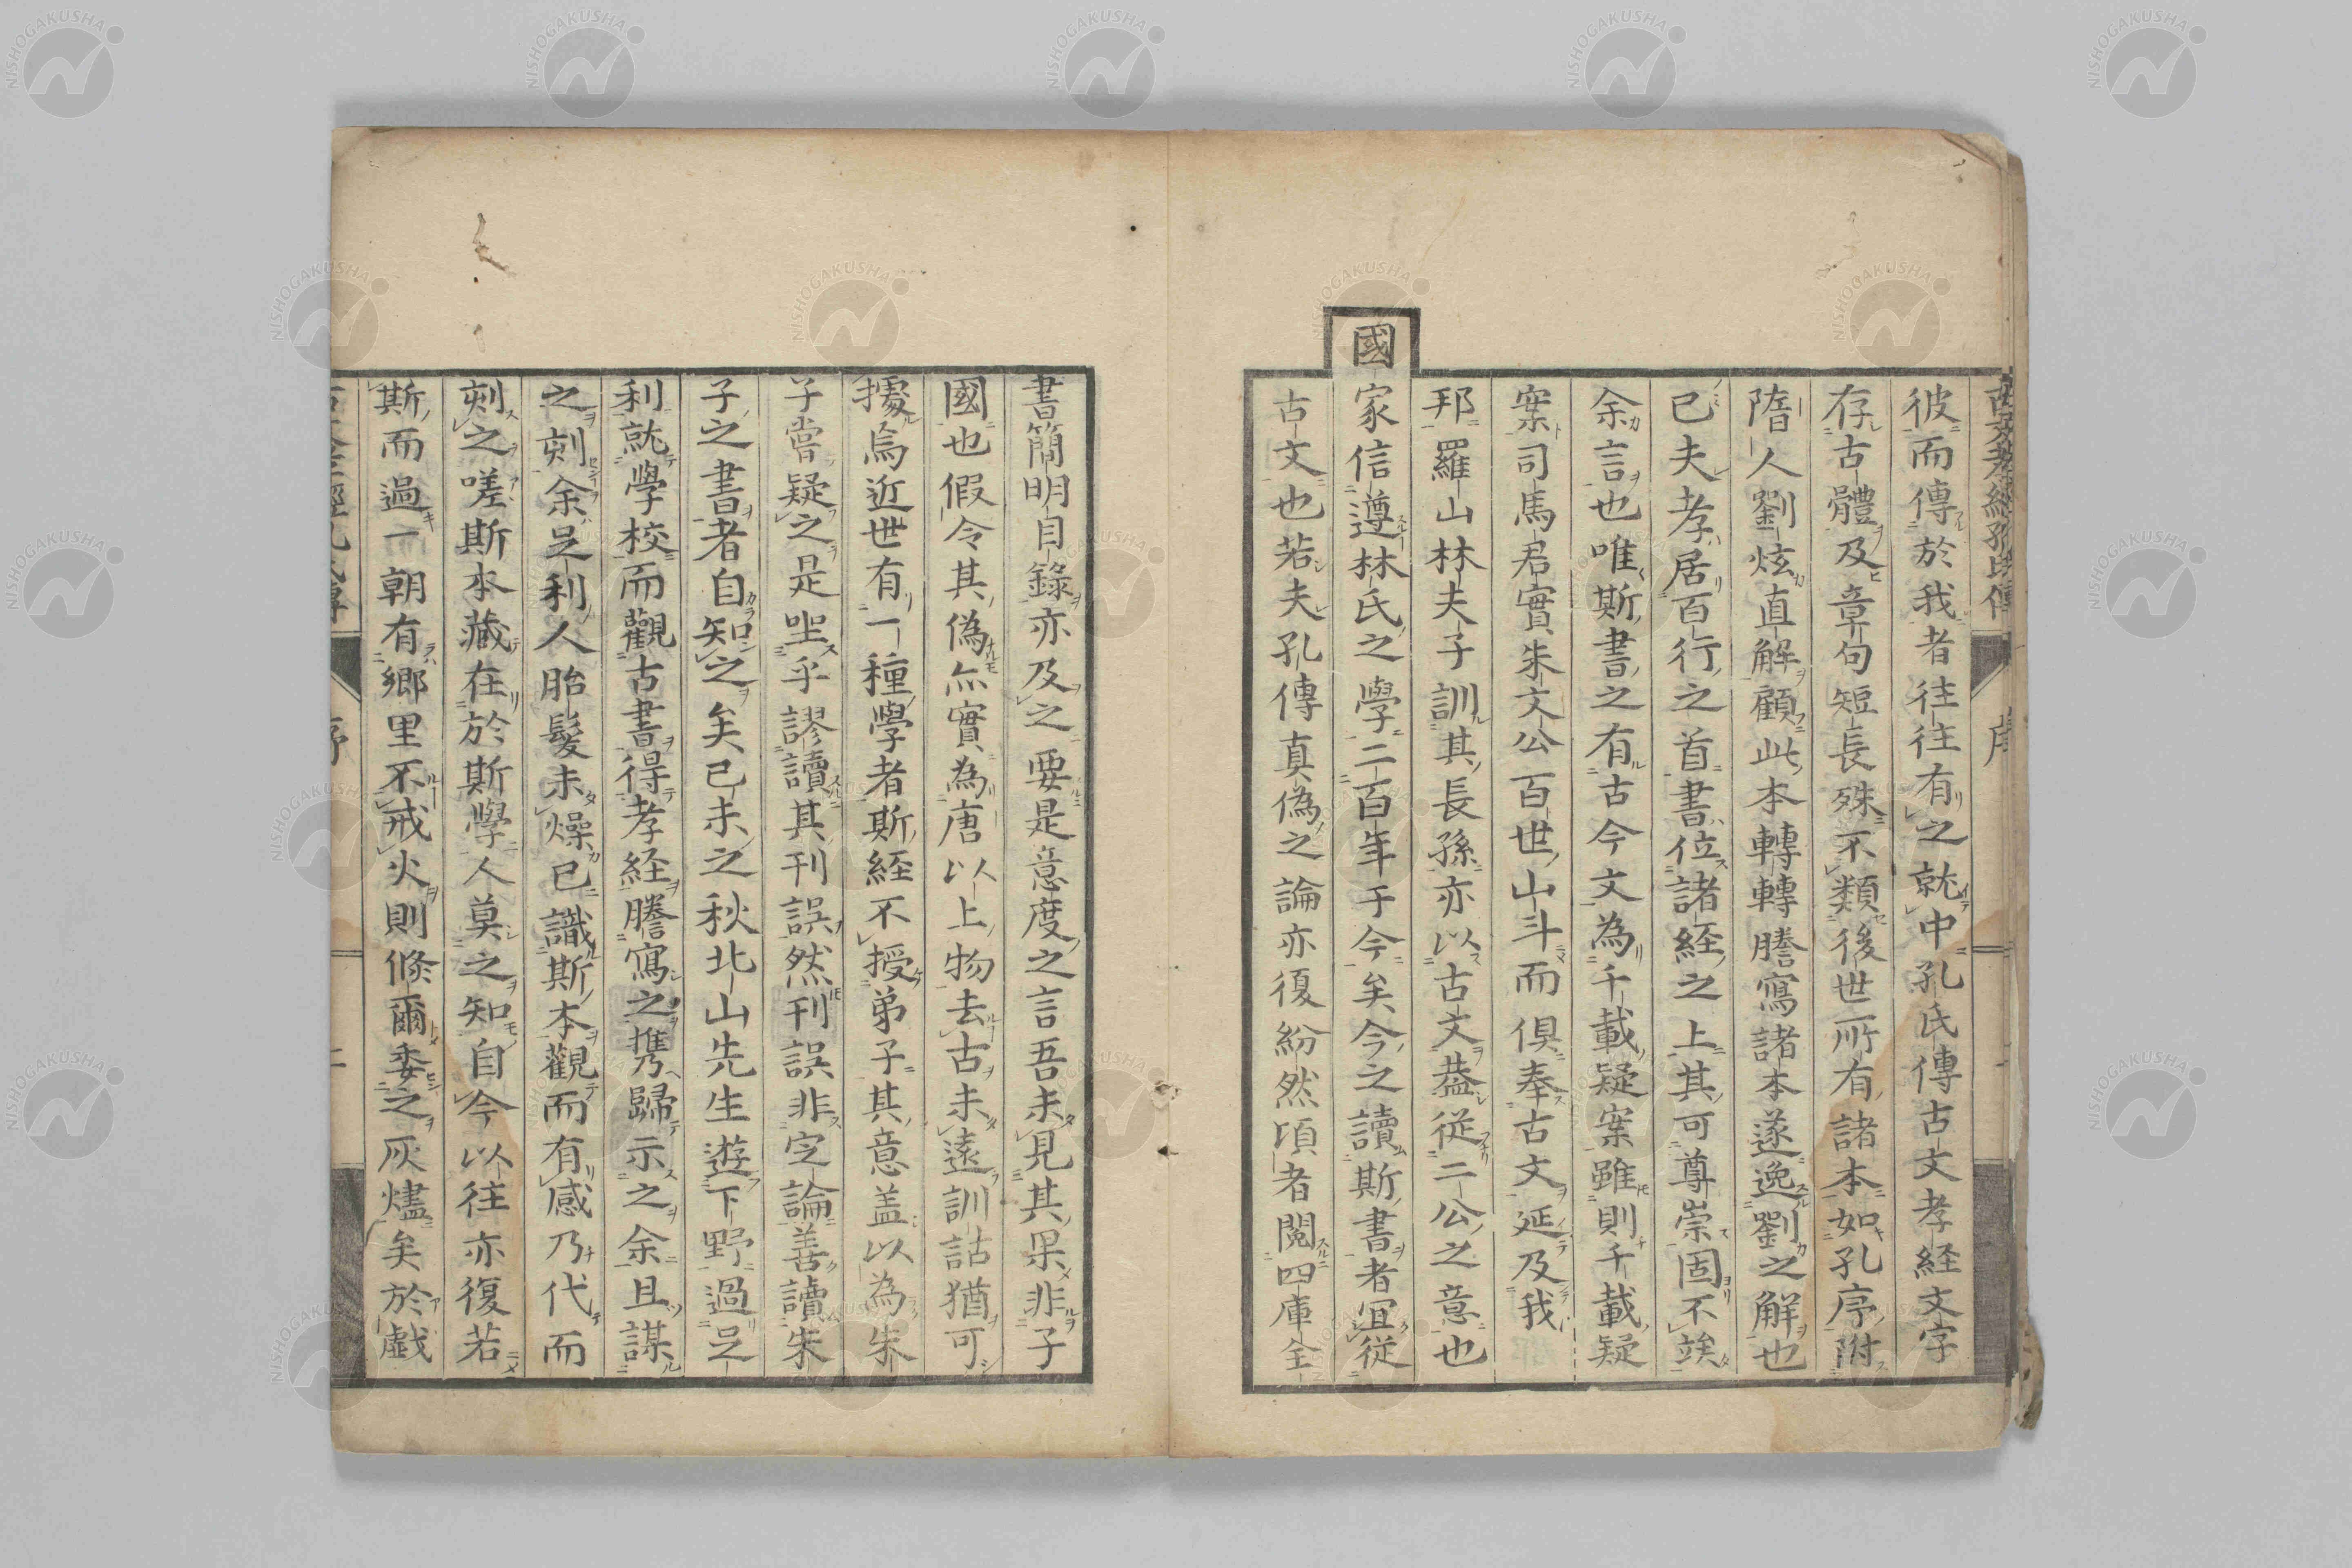 古文孝經孔氏傳 序
彼而傳於我者往往有之就中孔氏傳古文孝経文字
存古體及章句短長殊不類後世所有諸本如孔序附
隋人劉炫直解顧此本轉轉謄寫諸本遂逸劉之解也
已夫孝居百行之首書位諸経之上其可尊崇固不竢
余言也唯斯書之有古今文為千載疑案雖則千載疑
案司馬君實朱文公百世山斗而俱奉古文延及我
邦羅山林夫子訓其長孫亦以古文葢從二公之意也
國家信遵林氏之學二百年于今矣今之讀斯書者宜從
古文也若夫孔傳真偽之論亦復紛然頃者閱四庫全
書簡明目錄亦及之要是意度之言吾未見其果非子
國也假令其偽亦實為唐以上物去古未遠訓詁猶可
據焉近世有一種學者斯経不授弟子其意盖以為朱
子嘗疑之是坐乎謬讀其刊誤然刊誤非定論善讀朱
子之書者自知之矣己未之秋北山先生遊下野過足
利就學校而觀古書得孝経謄寫之携歸示之余且謀
之刻余足利人胎髮未燥已識斯本觀而有感乃代而
刻之嗟斯本藏在於斯學人莫之知自今以往亦復若
斯而過一朝有鄉里不戒火則倏爾委之灰燼矣於戲
NISHOGAKUSHA